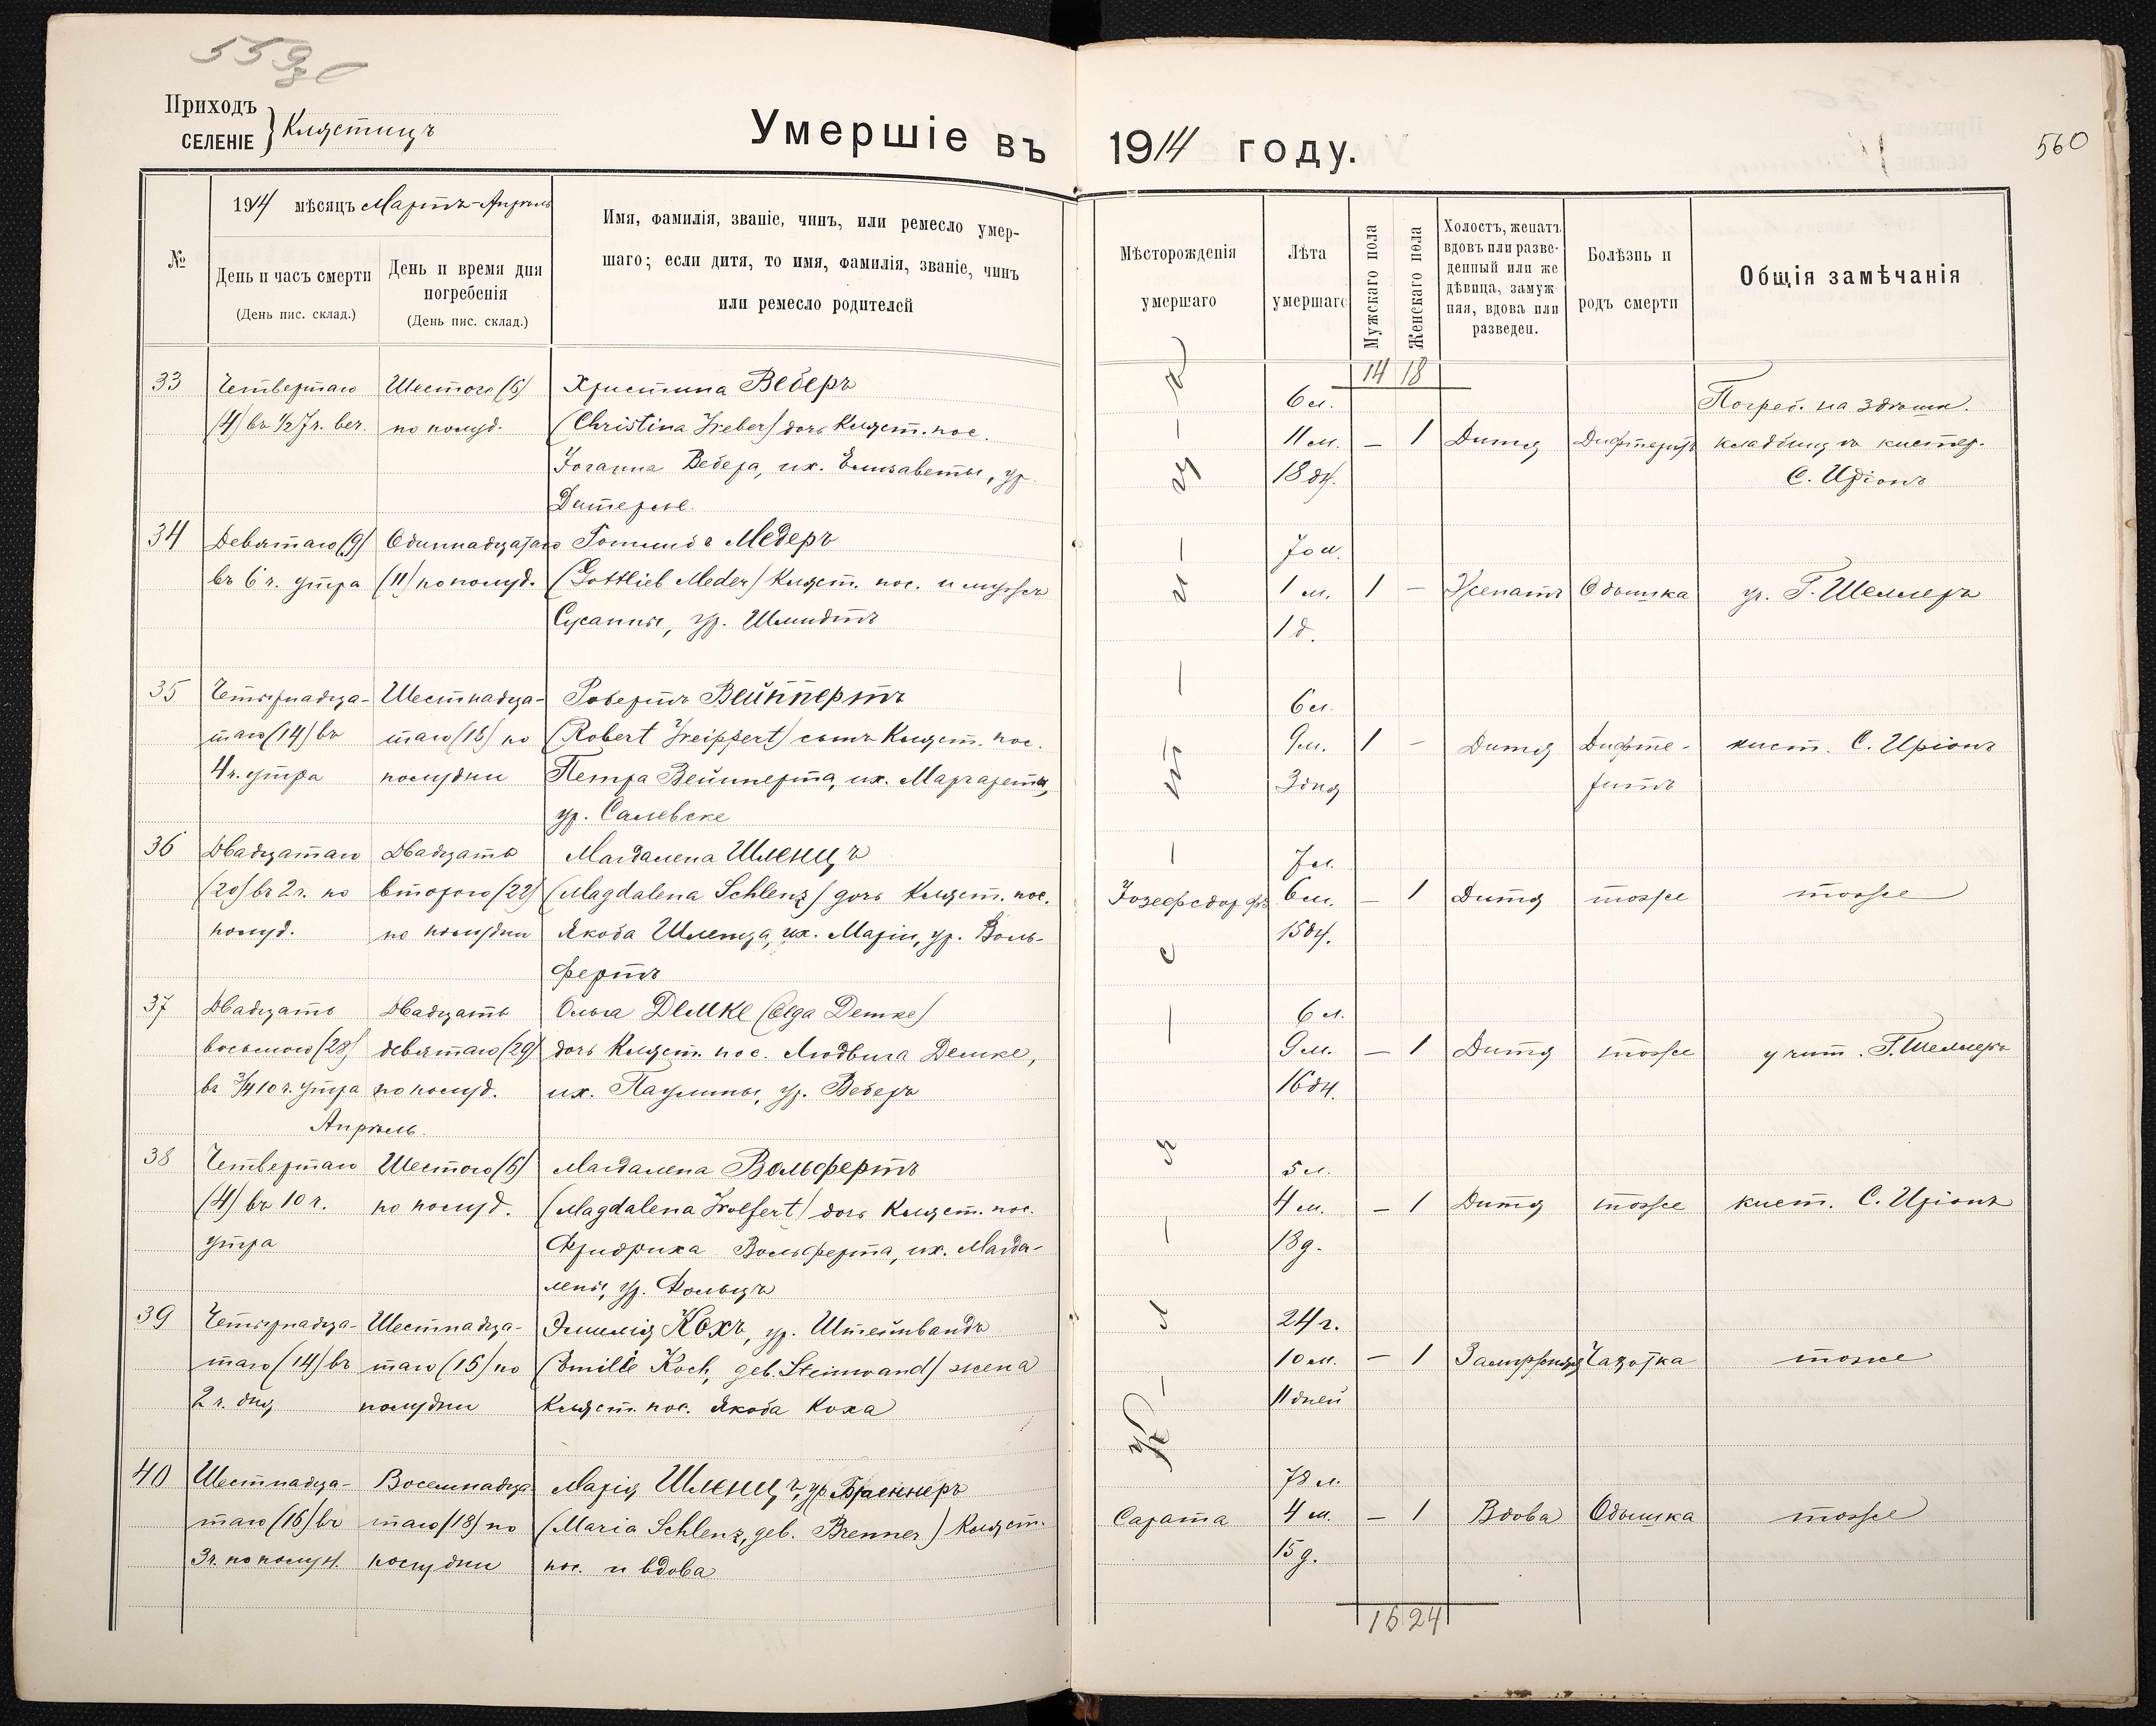 559
560
Приходъ
СЕЛЕНІЕ } Клястицъ
Умершіе въ 1914 году.
№
1914 мѣсяцъ Мартъ-Апрѣль
День и часъ смерти
(День пис. склад.)
День и время дня
погребенія
(День пис. склад.)
Имя, фамилія, званіе, чинъ, или ремесло умер-
шаго; если дитя, то имя, фамилія, званіе, чинъ
или ремесло родителей
Мѣсторожденія
умершаго
Лѣта
умершаго
Мужскаго пола
Женскаго пола
Холостъ, женатъ
вдовъ или разве-
денный или же
дѣвица, замуж-
няя, вдова или
разведен.
Болѣзнь и
родъ смерти
Общія замѣчанія
14 18
К-л-я-с-т-и-ц-ъ
33
Четвертаго
(4) въ 1/2 7ч. веч.
Шестого (6)
по полуд.
Христина Веберъ
(Christina Weber) дочь Кляст. пос.
Іоганна Вебера, их. Елисаветы, ур.
6 л.
11 м.
18 дн.
— 1
Дитя
Дифтеритъ
Погреб. на здѣшн.
кладбищѣ кистер.
С. Иріонъ
34
Девятаго (9)
въ 6 ч. утра
Одиннадцатаго
(11) по полуд.
Готлибъ Медеръ
(Gottlieb Meder) Кляст. пос. и мужъ
Сусанны, ур. Шмидтъ
70 л.
1 м.
1 д.
1 —
Женатъ
Одышка
уч. Г. Шеллеръ
35
Четырнадца-
таго (14) въ
4 ч. утра
Шестнадца-
таго (16) по
полудни
Робертъ Вейппертъ
(Robert Weippert) сынъ Кляст. пос.
Петра Вейпперта, их. Маргареты,
ур. Салевске
6 л.
9 м.
3 дня
1 —
Дитя
Дифте-
ритъ
кист. С. Иріонъ
36
Двадцатаго
(20) въ 2 ч. по
полуд.
Двадцать
второго (22)
по полудни
Магдалена Шленцъ
(Magdalena Schlenz) дочь Кляст. пос.
Якоба Шленца, их. Маріи, ур. Воль-
фертъ
Іозефсдорфъ
7 л.
6 м.
15 дн.
— 1
Дитя
тоже
тоже
37
Двадцать
восьмого (28)
въ 3/4 10 ч. утра
Двадцать
девятаго (29)
по полуд.
Ольга Демке (Olga Demke)
дочь Кляст. пос. Людвига Демке,
их. Паулины, ур. Веберъ
6 л.
9 м.
16 дн.
— 1
Дитя
тоже
учит. Г. Шеллеръ
Апрѣль.
38
Четвертаго
(4) въ 10 ч.
утра
Шестого (6)
по полуд.
Магдалена Вольфертъ
(Magdalena Wolfert) дочь Кляст. пос.
Фридриха Вольферта, их. Магда-
лены, ур. Фольцъ
5 л.
4 м.
18 д.
— 1
Дитя
тоже
кист. С. Иріонъ
39
Четырнадца-
таго (14) въ
2 ч. дня
Шестнадца-
таго (15) по
полудни
Эмилія Кохъ, ур. Штейнвандъ
(Emilie Koch, geb. Steinwand) жена
Кляст. пос. Якоба Коха
24 г.
10 м.
11 дней
— 1
Замужняя
Чахотка
тоже
40
Шестнадца-
таго (16) въ
3 ч. по полудн.
Восемнадца-
таго (18) по
полудни
Марія Шленцъ, ур. Бреннеръ
(Maria Schlenz, geb. Brenner) Кляст.
пос. и вдова
Сарата
78 л.
4 м.
15 д.
— 1
Вдова
Одышка
тоже
16 24